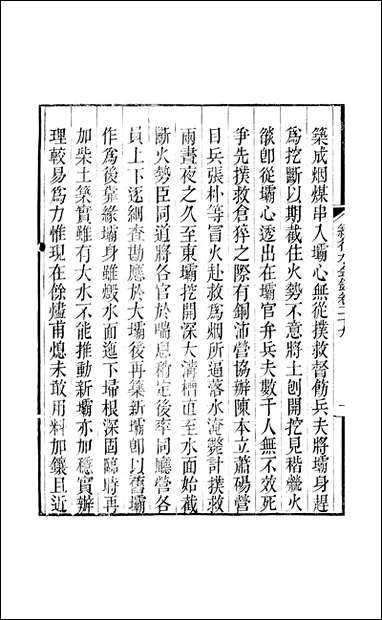 築成烟煤串入壩心無從撲救督飭兵夫將壩身趕
為挖斷以期截住火勢不意將土刨開挖見稭纜火
燄卽從壩心透出在壩官弁兵夫數千人無不效死
爭先撲救倉猝之際有銅沛營協辦陳本立蕭碭營
目兵張朴等冒火赴救為烟所逼落水淹斃計撲救
兩晝夜之久至東壩挖開深大溝槽直至水面始截
斷火勢臣同道將各官於喘息稍定後率同廳營各
員上下逐細查勘應於大壩後再築新壩卽以舊壩
作為後靠緣壩身雖燬水面迤下埽根深固臨時再
加柴土築實雖有大水不能推動新壩亦加穩實辦
理較易為力惟現在餘燼甫熄未敢用料加鑲且近
續行水金鑑卷二十九